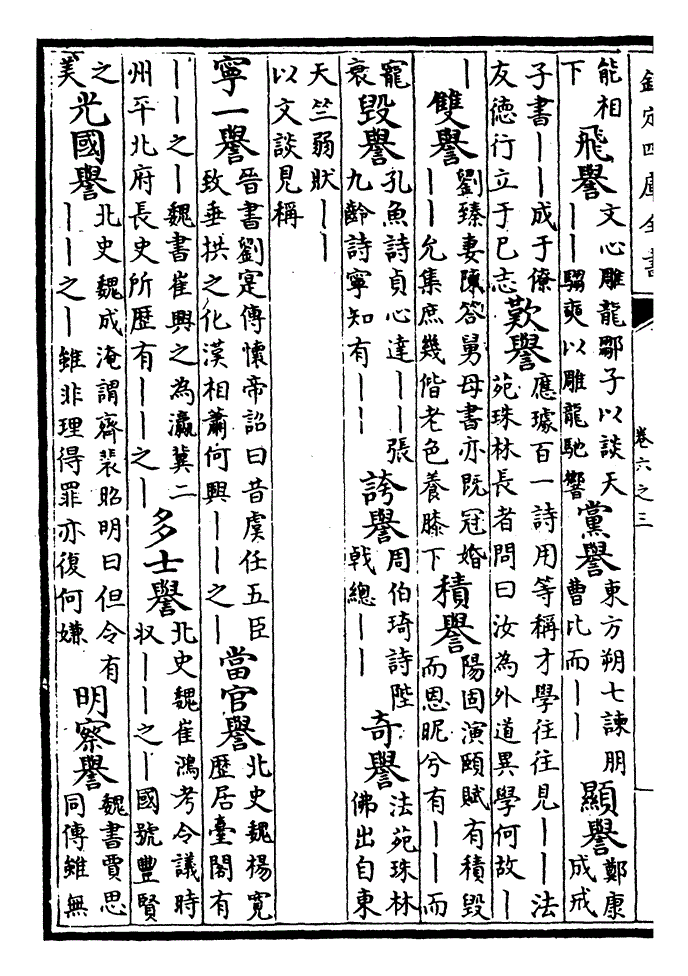 欽定四庫全書
卷六之三
能相
下
飛譽
文心雕龍鄒子以談天
——騶奭以雕龍馳響
黨譽
東方朔七諫朋
曹比而——
顯譽
鄭康
成戒
子書——成于僚
友德行立于己志
歎譽
應璩百一詩用等稱才學往往見——法
苑珠林長者問曰汝為外道異學何故—
—
雙譽
劉臻妻陳答舅母書亦既冠婚
——允集庶幾偕老色養膝下
積譽
陽固演頤賦有積毀
而恩昵兮有——而
寵
衰
毀譽
孔魚詩貞心達——張
九齡詩寧知有——
誇譽
周伯琦詩陛
戟總——
奇譽
法苑珠林
佛出自東
天竺弱狀——
以文談見稱
寧一譽
晉書劉寔傳懷帝詔曰昔虞任五臣
致垂拱之化漢相蕭何興——之—
當官譽
北史魏楊寬
歷居臺閣有
——之—魏書崔興之為瀛冀二
州平北府長史所歷有——之—
多士譽
北史魏崔鴻考令議時
收——之—國號豐賢
之
美
光國譽
北史魏成淹謂齊裴昭明曰但令有
——之—雖非理得罪亦復何嫌
明察譽
魏書賈思
同傳雖無